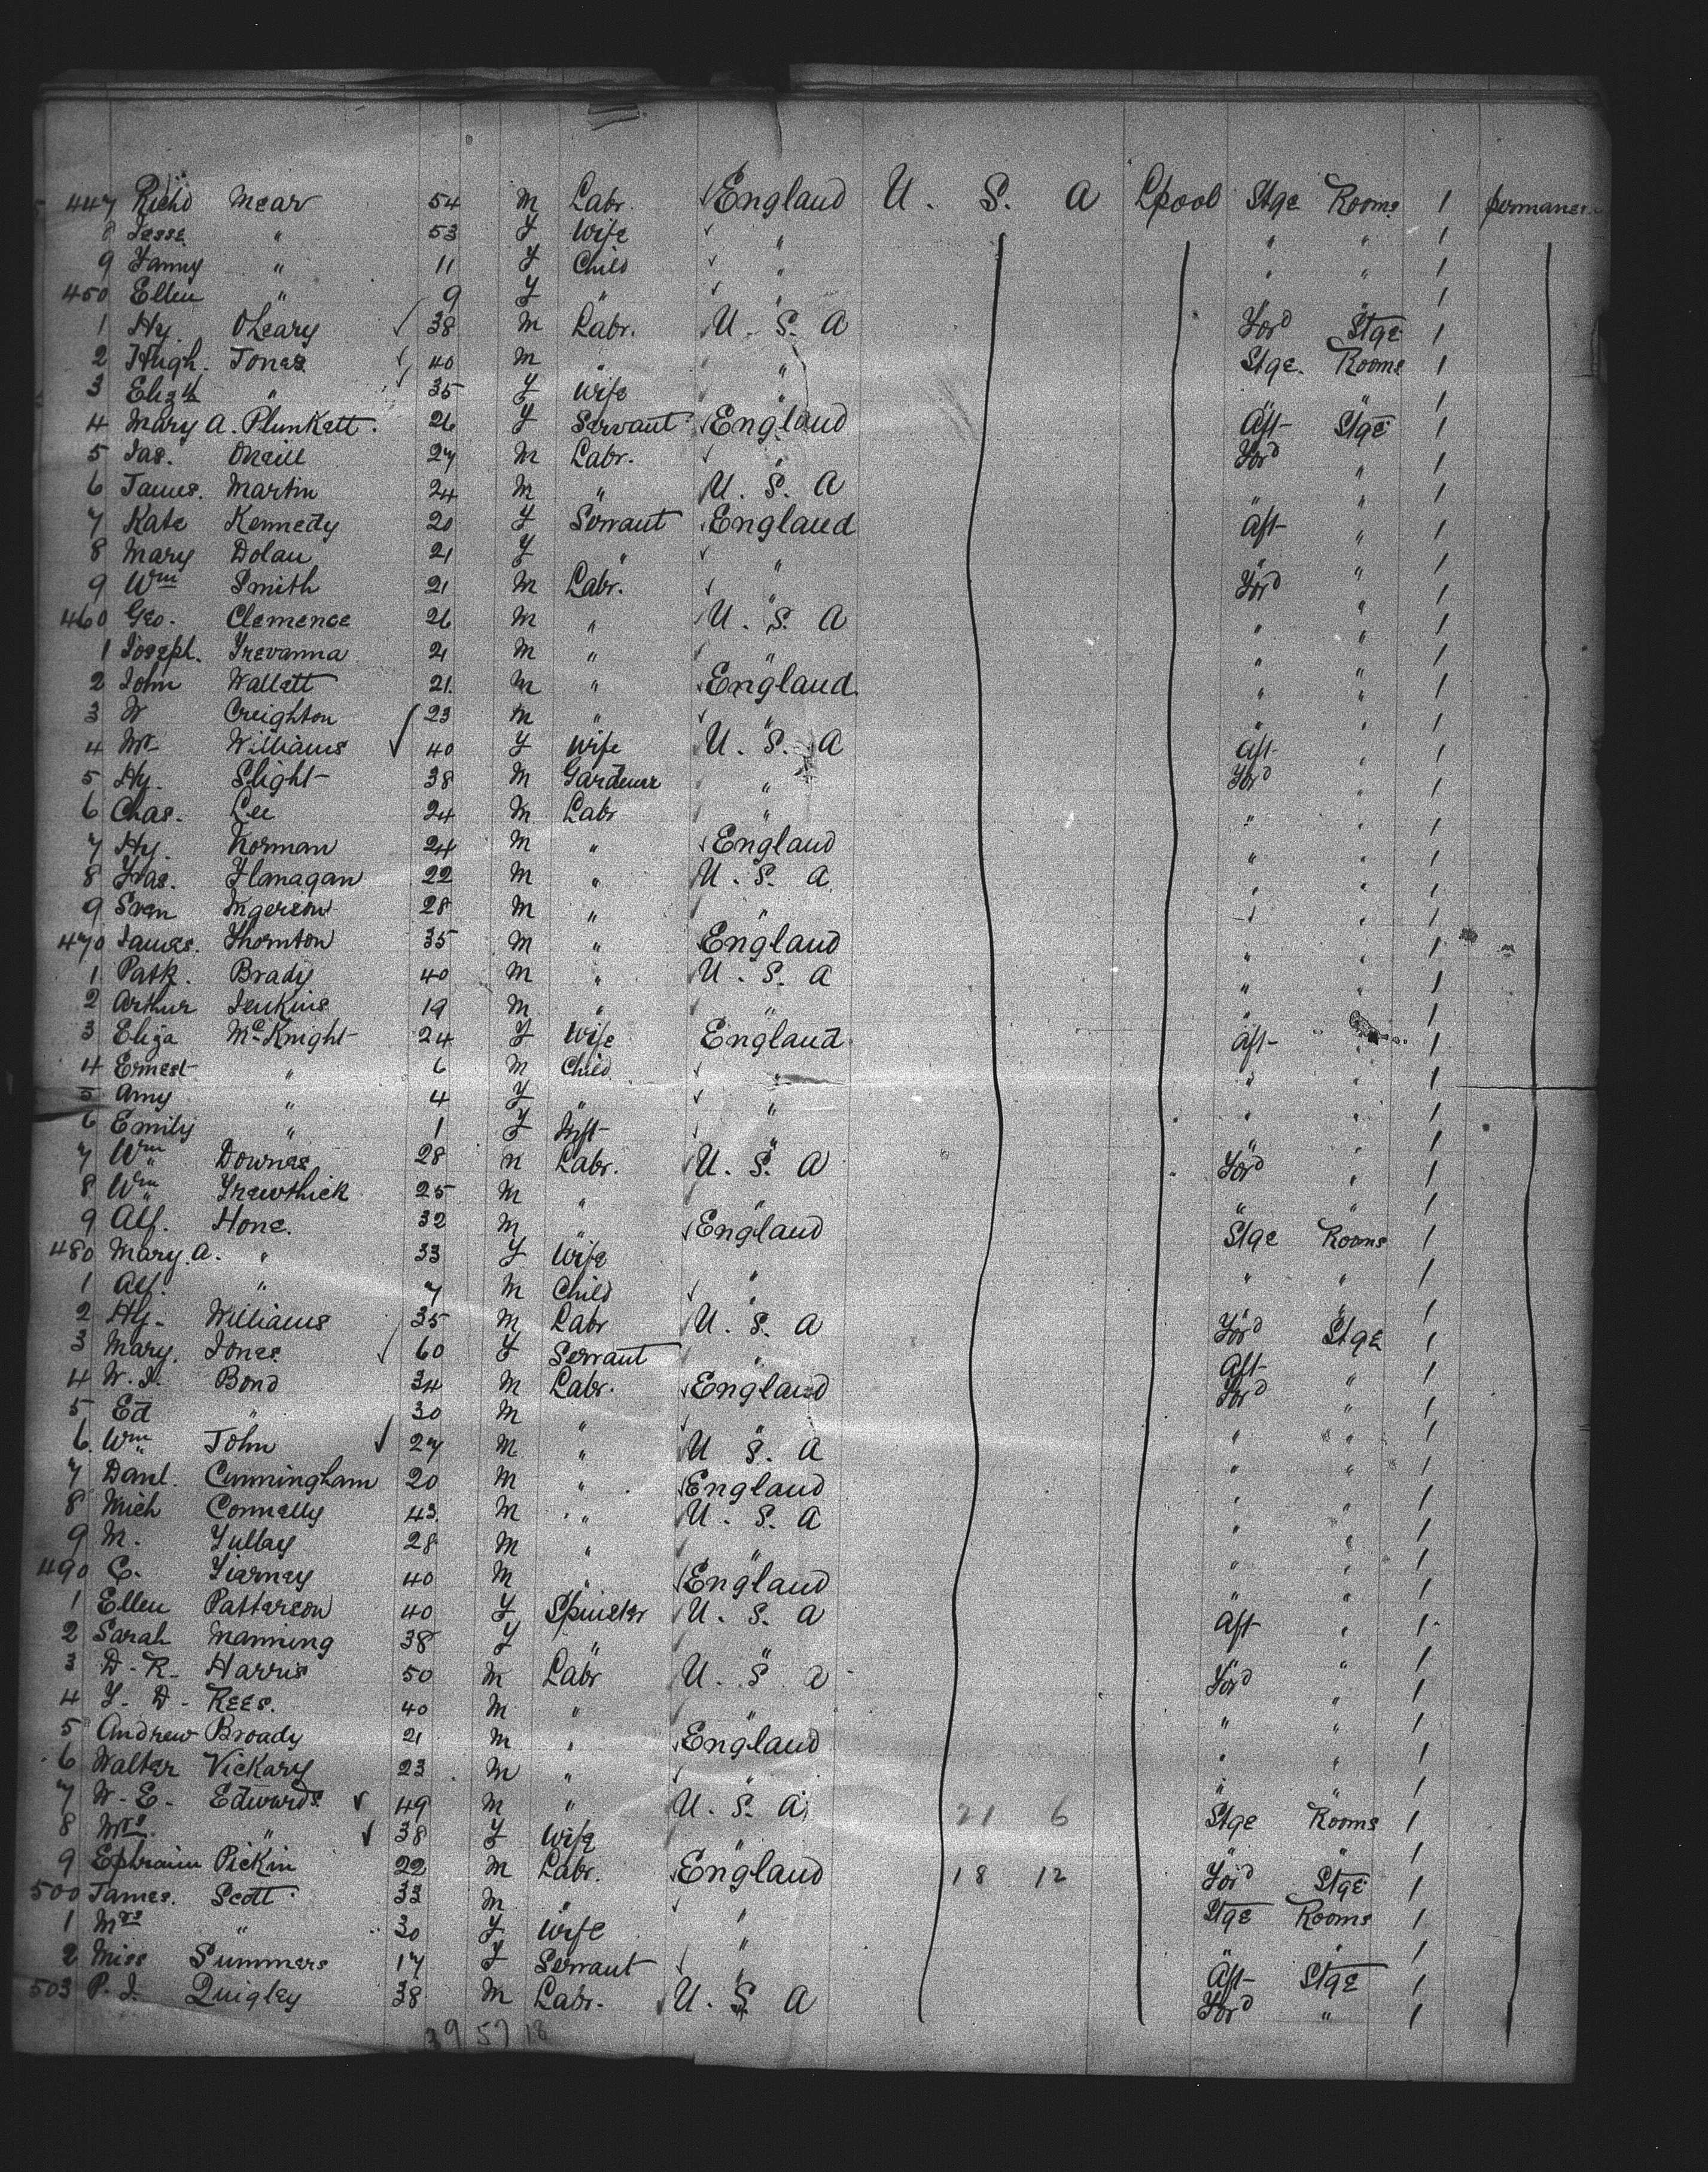 447 Richd Mear 54 M Labr. England U. S. A Lpool Stge Rooms 1
8 Jesse " 53 F Wife " " " 1
9 Fanny " 11 F Child " " " 1
450 Ellen " 9 F " " " " 1
1 Hy. OLeary 38 M Labr. U. S. A Ford Stge 1
2 Hugh. Jones 40 M " " Stge. Rooms 1
3 Elizth " 35 F Wife " " " 1
4 Mary A. Plunkett. 26 F Servant England Aft Stge 1
5 Jas. Oneill 27 M Labr. " Ford " 1
6 James. Martin 24 M " U. S. A " " 1
7 Kate Kennedy 20 F Servant England Aft " 1
8 Mary Dolan 21 F " " " " 1
9 Wm Smith 21 M Labr. " Ford " 1
460 Geo. Clemence 26 M " U. S. A " " 1
1 Joseph. Trevanna 21 M " " " " 1
2 John Wallett 21. M " England " " 1
3 W Creighton 23 M " " " " 1
4 Williams 40 F Wife U. S. A Aft " 1
5 Hy. Slight 38 M Gardener " Ford " 1
6 Chas. Lee 24 M Labr " " " 1
7 Hy. Norman 24 M " England " " 1
8 Fras. Flanagan 22 M " U. S. A " " 1
9 Sven 28 M " " " " 1
470 James. Thornton 35 M " England " " 1
1 Patk. Brady 40 M " U. S. A " " 1
2 Arthur Jenkins 19 M " " " " 1
3 Eliza McKnight 24 F Wife England Aft " 1
4 Ernest " 6 M Child " " " 1
5 Amy " 4 F " " " " 1
6 Emily " 1 F Inft " " " 1
7 Wm Downes 28 M Labr. U. S. A Ford " 1
8 Wm Trewthick 25 M " " " " 1
9 Alf. Hone. 32 M " England Stge Rooms 1
480 Mary. A. " 33 F Wife " " " 1
1 Alf. " 7 M Child " " " 1
2 Hy. Williams 35 M Labr U. S. A Ford Stge 1
3 Mary. Jones 60 F Servant " Aft " 1
4 W. J. Bond 34 M Labr. England Ford " 1
5 Ed " 30 M " " " " 1
6. Wm John 27 M " U S. A " " 1
7 Danl. Cunningham 20 M " England " " 1
8 Mich Connelly 43. M " U. S. A " " 1
9 M. 28 M " " " " 1
490 C. Tiarney 40 M " England " " 1
1 Ellen Patterson 40 F Spinster U. S. A Aft " 1
2 Sarah Manning 38 F " " " " 1
3 D. R. Harris 50 M Labr U. S a Ford " 1
4 D. Rees. 40 M " " " " 1
5 Andrew Broady 21 M " England " " 1
6 Walter Vickary 23 M " " " " 1
7 W. E. Edwards 49 M " U. S. A 21 6 Stge Rooms 1
8 Mrs. " 38 F Wife " " " 1
9 Ephraim Pickin 22 M Labr. England 18 12 Ford Stge 1
500 James. Scott 33 M " " Stge Rooms 1
1 Mrs " 30 F Wife " " " 1
2 Miss Summers 17 F Servant " Aft Stge 1
503 P. J. Quigley 38 M Labr. U. S. A Ford " 1
39 57 18